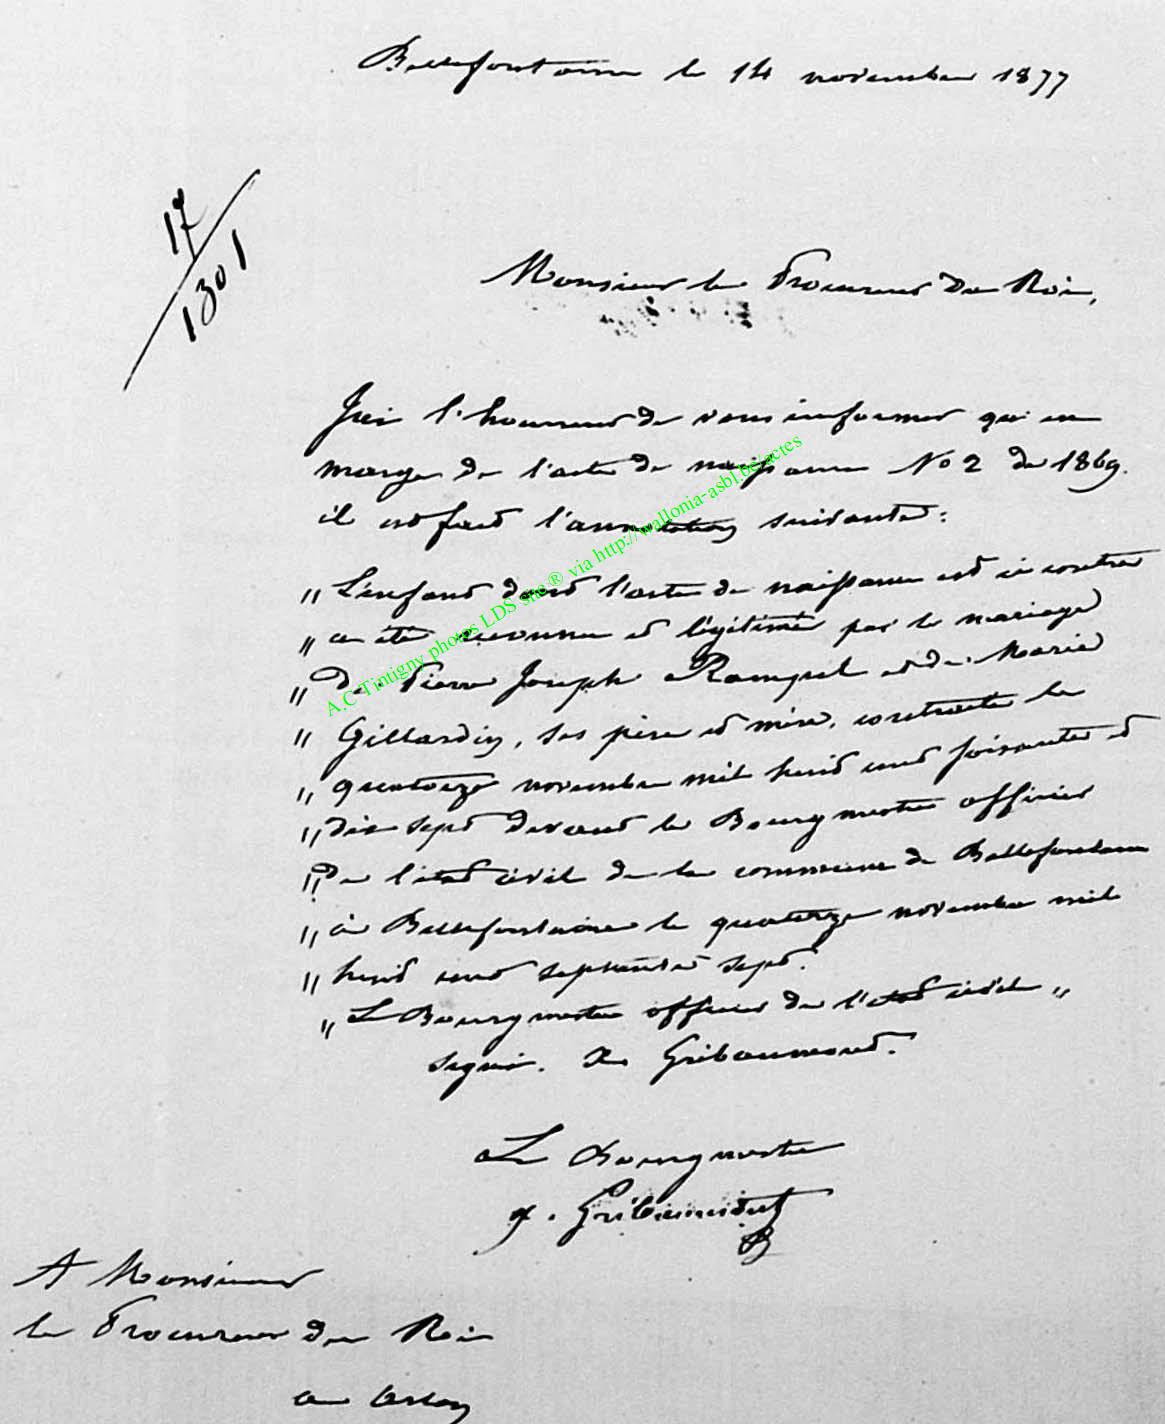 Bellefontaine le 14 novembre 1877
17
1301
Monsieur le Procureur du Roi,
J'ai l'honneur de vous informer qu'en
marge de l'acte de naissance No 2 de 1869.
il est fait l'annotation suivante:
" L'enfant dont l'acte de naissance est ci contre
" a été reconnu et légitimé par le mariage
" de Pierre Joseph Rampel et de Marie
" Gillardin, ses père et mère, contracté le
" quatorze novembre mil huit cent soixante et
" dix sept devant le Bourgmestre officier
" de l'état civil de la commune de Bellefontaine
" à Bellefontaine le quatorze novembre mil
" huit cent septante sept.
" Le Bourgmestre officier de l'état civil "
signé. Gribaumont.
Le Bourgmestre
Gribaumont
A Monsieur
le Procureur du Roi
a Arlon
A.C Tintigny photos LDS site ® via http://wallonia-asbl.be/actes